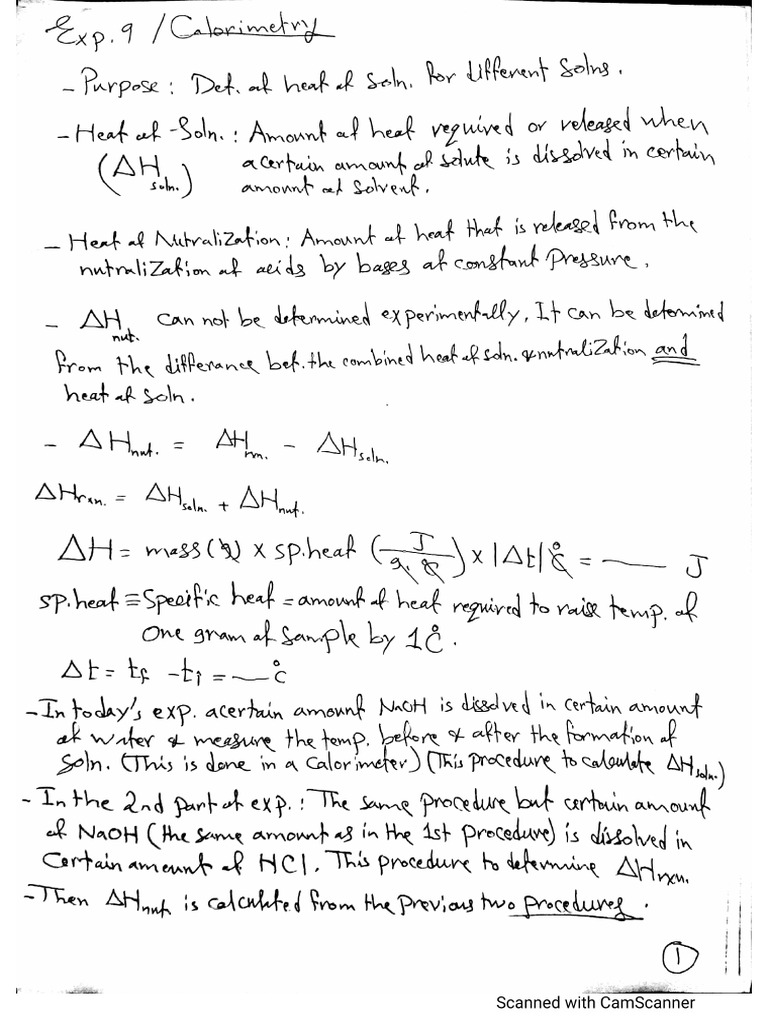 Exp. 9 / Calorimetry
- Purpose: Det. of heat of Soln. for different Solns.
- Heat of Soln. : Amount of heat required or released when
(ΔH soln.) a certain amount of solute is dissolved in certain
amount of solvent.
- Heat of Nutralization: Amount of heat that is released from the
nutralization of acids by bases at constant Pressure.
- ΔH nut. can not be determined experimentally, It can be determined
from the differance bet. the combined heat of soln. & nutralization and
heat of soln.
- ΔH nut. = ΔH rxn. - ΔH soln.
ΔH rxn. = ΔH soln. + ΔH nut.
ΔH = mass (g) x sp.heat (J / g. °C) x |Δt| °C = ___ J
sp.heat ≡ Specific heat = amount of heat required to raise temp. of
One gram of Sample by 1 °C.
Δt = tf - ti = ___ °C
- In today's exp. a certain amount NaOH is dissolved in certain amount
of water & measure the temp. before & after the formation of
Soln. (This is done in a Calorimeter) (This procedure to calculate ΔH soln.)
- In the 2nd part of exp. : The same procedure but certain amount
of NaOH (the same amount as in the 1st procedure) is dissolved in
Certain amount of HCl. This procedure to determine ΔH rxn.
- Then ΔH nut is calculated from the previous two procedures.
1
Scanned with CamScanner